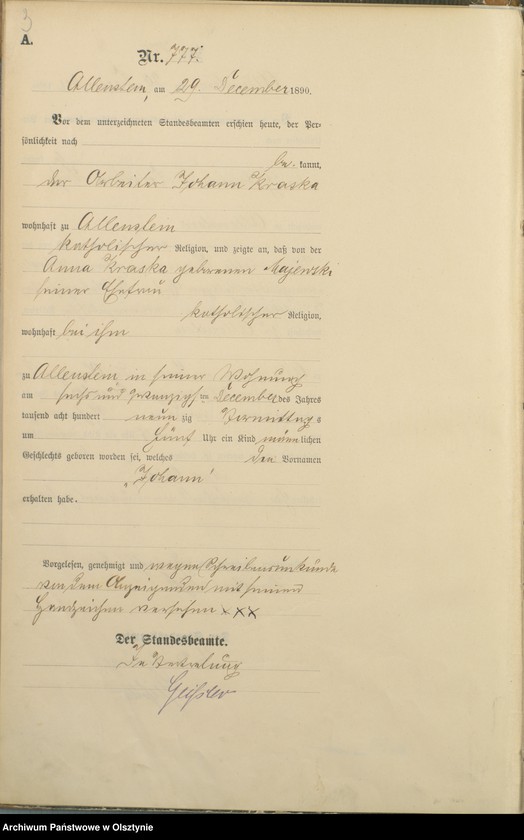 3
A.
Nr. 777.
Allenstein, am 29. December 1890.
Vor dem unterzeichneten Standesbeamten erschien heute, der Per-
sönlichkeit nach
be kannt,
der Arbeiter Johann Kraska
wohnhaft zu Allenstein
katholischer Religion, und zeigte an, daß von der
Anna Kraska geborenen Majewski
seiner Ehefrau
katholischer Religion,
wohnhaft bei ihm
zu Allenstein in seiner Wohnung
am sechs und zwanzigsten December des Jahres
tausend acht hundert neun zig Vormittags
um fünf Uhr ein Kind männlichen
Geschlechts geboren worden sei, welches den Vornamen
„Johann"
erhalten habe.
Vorgelesen, genehmigt und wegen Schreibensunkunde
von dem Anzeigenden mit seinem
Handzeichen versehen xxx
Der Standesbeamte.
In Vertretung
Archiwum Państwowe w Olsztynie